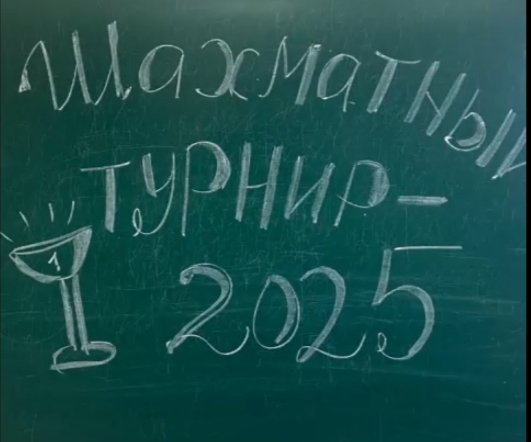 Шахматный
турнир-
2025
1